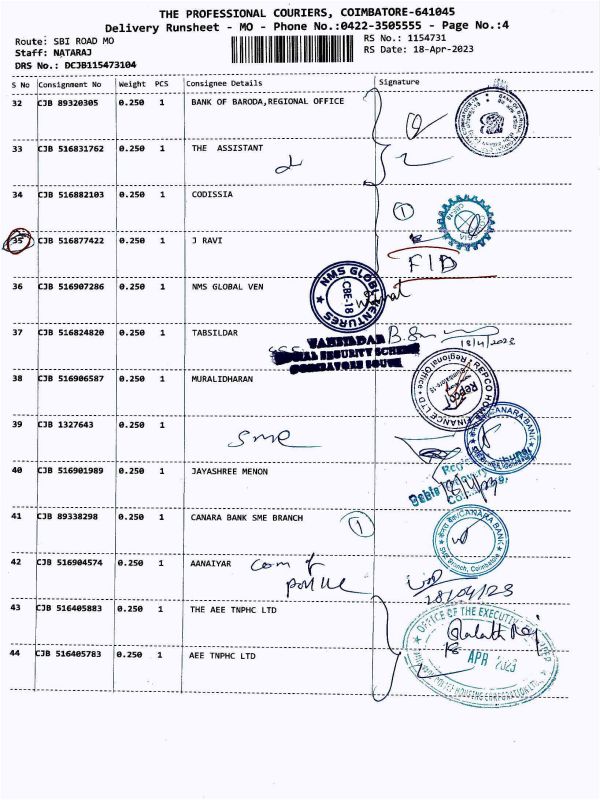 THE PROFESSIONAL COURIERS, COIMBATORE-641045
Delivery Runsheet - MO - Phone No.:0422-3505555 - Page No.:4
Route: SBI ROAD MO
RS No.: 1154731
Staff: NATARAJ
RS Date: 18-Apr-2023
DRS No.: DCJB115473104
S No Consignment No Weight PCS Consignee Details Signature
32 CJB 89320305 0.250 1 BANK OF BARODA,REGIONAL OFFICE
33 CJB 516831762 0.250 1 THE ASSISTANT
34 CJB 516882103 0.250 1 CODISSIA
1
35 CJB 516877422 0.250 1 J RAVI
FID
36 CJB 516907286 0.250 1 NMS GLOBAL VEN
NMS GLOBAL VENTURES
CBE-18
37 CJB 516824820 0.250 1 TABSILDAR
18/4/2023
TAHSILDAR
SOCIAL SECURITY SCHEME
COIMBATORE SOUTH
38 CJB 516906587 0.250 1 MURALIDHARAN
REPCO HOME FINANCE LTD
Regional Office
39 CJB 1327643 0.250 1
SME
CANARA BANK
40 CJB 516901989 0.250 1 JAYASHREE MENON
41 CJB 89338298 0.250 1 CANARA BANK SME BRANCH
1
CANARA BANK
SME Branch, Coimbatore
42 CJB 516904574 0.250 1 AANAIYAR
Com of
police
18/04/23
43 CJB 516405883 0.250 1 THE AEE TNPHC LTD
OFFICE OF THE EXECUTIVE ENGINEER
18 APR 2023
POLICE HOUSING CORPORATION LTD.
44 CJB 516405783 0.250 1 AEE TNPHC LTD